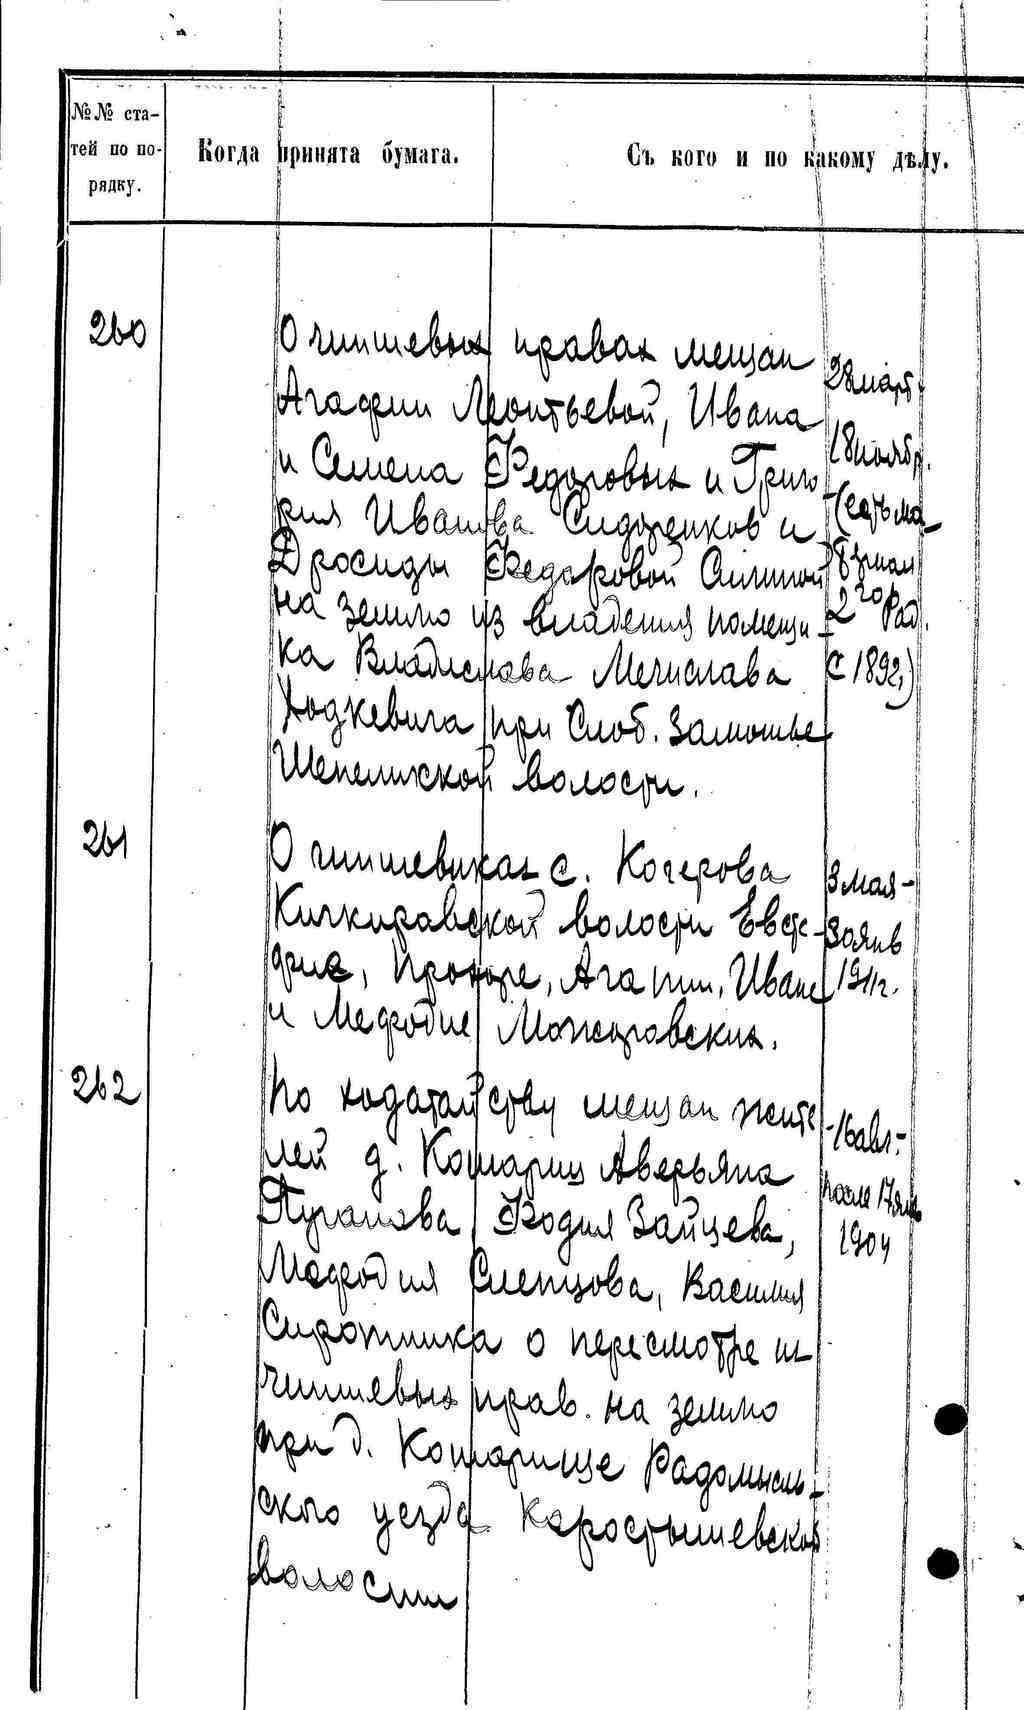 №№ ста-
тей по по-
рядку.
Когда принята бумага.
Съ кого и по какому дѣлу.
260
О чиншевых правах мещан
Агафии Леонтьевой, Ивана
и Семена Федоровых и Григо
рия Иванова Сидоренков и
Дросиды Федоровой
на землю из владения помещи-
ка Владислава Мечислава
Ходкевича при Слоб. Замошье
Шепеличской волости.
28 март
18 ноябр.
(есть
2го Рад.
с 1892,)
261
О чиншевиках с. Кочерова
Кичкировской волости Евст-
Прохоре, Агапии, Иване
и Мефодие Можаровских.
3 мая -
30 янв
1911г.
262
По ходатайству мещан жите
лей д. Кошарищ Аверьяна
Пуганова, Зайцева,
Мефодия Слепцова, Василия
Сиротника о пересмотре их
чиншевых прав. на землю
при д. Кошарище Радомысль-
ского уезда Коростышевской
волости
-16 авг.-
после 17 янв
1904